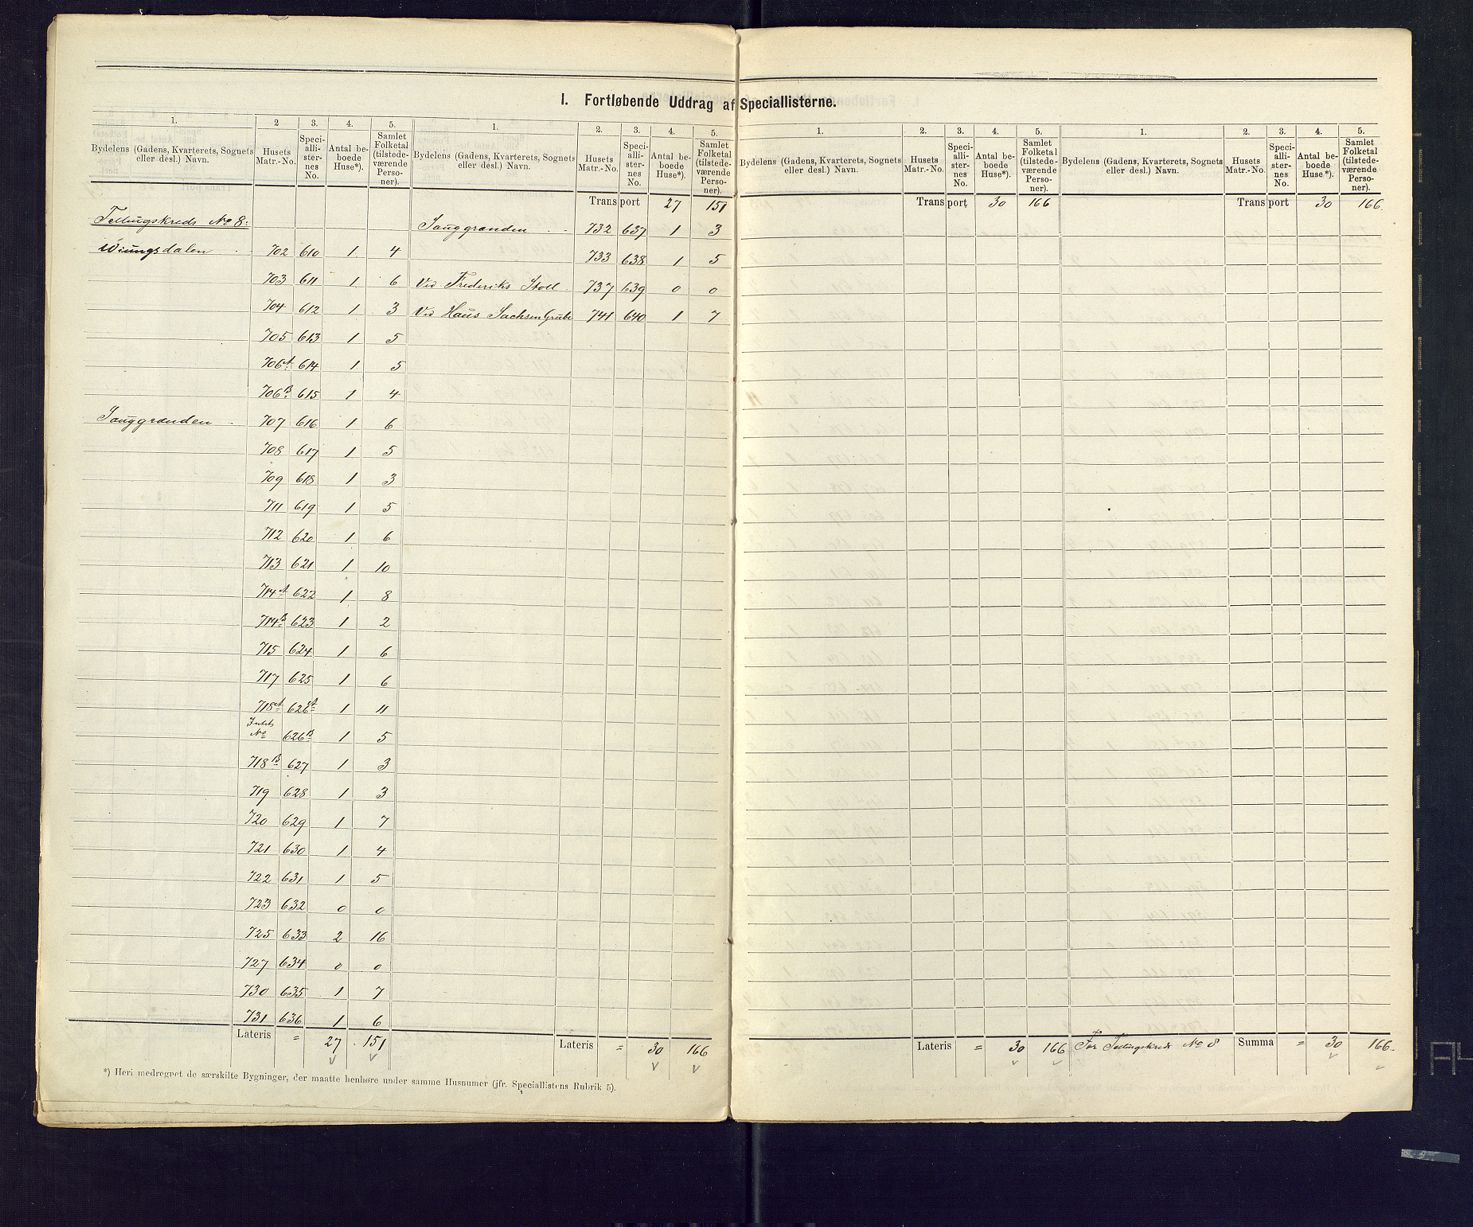 I. Fortløbende Uddrag af Speciallisterne.
1. 2 3. 4. 5. 1. 2. 3. 4. 5. 1. 2. 3. 4. 5. 1. 2. 3. 4. 5.
Bydelens (Gadens, Kvarterets, Sognets eller desl.) Navn. Husets Matr.-No. Speciallisternes No. Antal beboede Huse*). Samlet Folketal (tilstedeværende Personer).
Bydelens (Gadens, Kvarterets, Sognets eller desl.) Navn. Husets Matr.-No. Speciallisternes No. Antal beboede Huse*). Samlet Folketal (tilstedeværende Personer).
Bydelens (Gadens, Kvarterets, Sognets eller desl.) Navn. Husets Matr.-No. Speciallisternes No. Antal beboede Huse*). Samlet Folketal (tilstedeværende Personer).
Bydelens (Gadens, Kvarterets, Sognets eller desl.) Navn. Husets Matr.-No. Speciallisternes No. Antal beboede Huse*). Samlet Folketal (tilstedeværende Personer).
Tellingskreds No 8:
702 610 1 4
703 611 1 6
704 612 1 3
705 613 1 5
706A 614 1 5
706B 615 1 4
Sauggranden 707 616 1 6
708 617 1 5
709 618 1 3
711 619 1 5
712 620 1 6
713 621 1 10
714A 622 1 8
714B 623 1 2
715 624 1 6
717 625 1 6
718A 626A 1 11
No 626B 1 5
718B 627 1 3
719 628 1 3
720 629 1 7
721 630 1 4
722 631 1 5
723 632 0 0
725 633 2 16
727 634 0 0
730 635 1 7
731 636 1 6
Lateris = 27 151
Transport 27 151
Sauggranden 732 637 1 3
733 638 1 5
Ved Frederiks Stoll 737 639 0 0
Ved Haus Sachsen Grube 741 640 1 7
Lateris = 30 166
*) Heri medregnet de særskilte Bygninger, der maatte henhøre under samme Husnumer (jfr. Speciallistens Rubrik 5).
Transport 30 166
Lateris = 30 166
Transport 30 166
For Tellingskreds No 8 Summa = 30 166